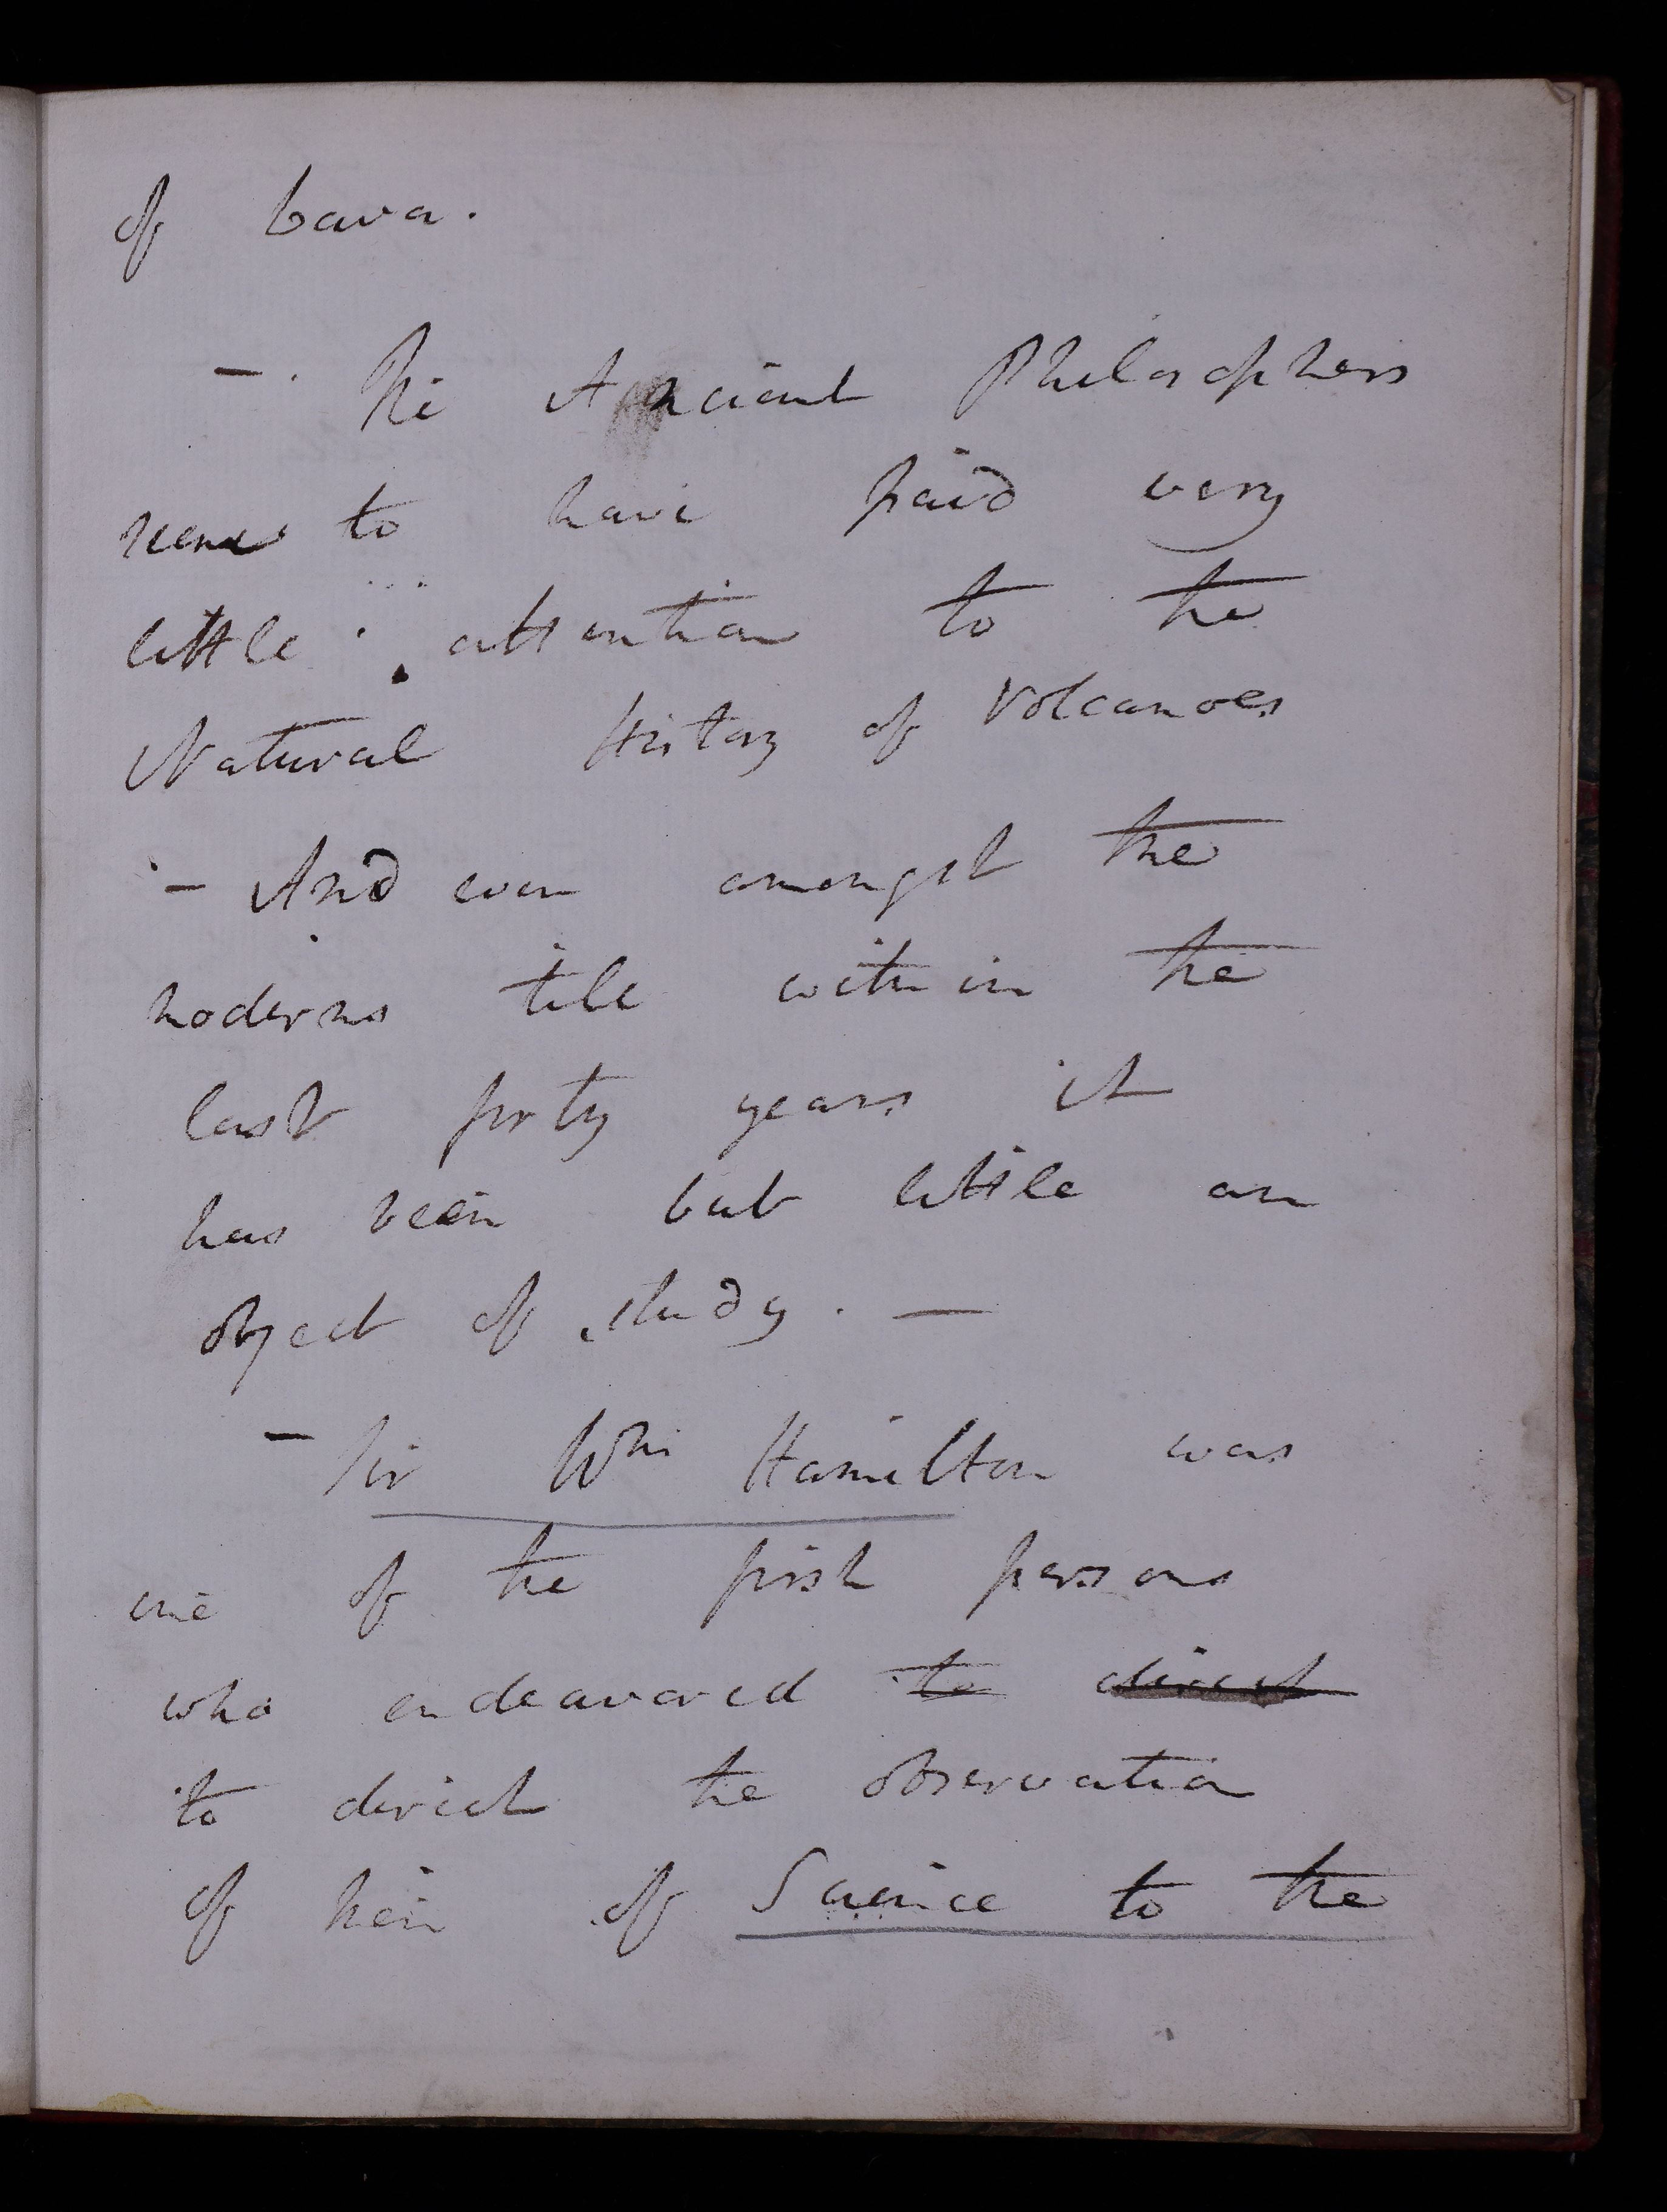 of Lava.
- The Ancient Philosophers
seem to have paid very
little attention to the
Natural History of Volcanoes
- And even amongst the
moderns till within the
last forty years it
has been but little an
object of study. -
- Sir Wm Hamilton was
one of the first persons
who endeavored to direct
to direct the observation
of Men of Science to the